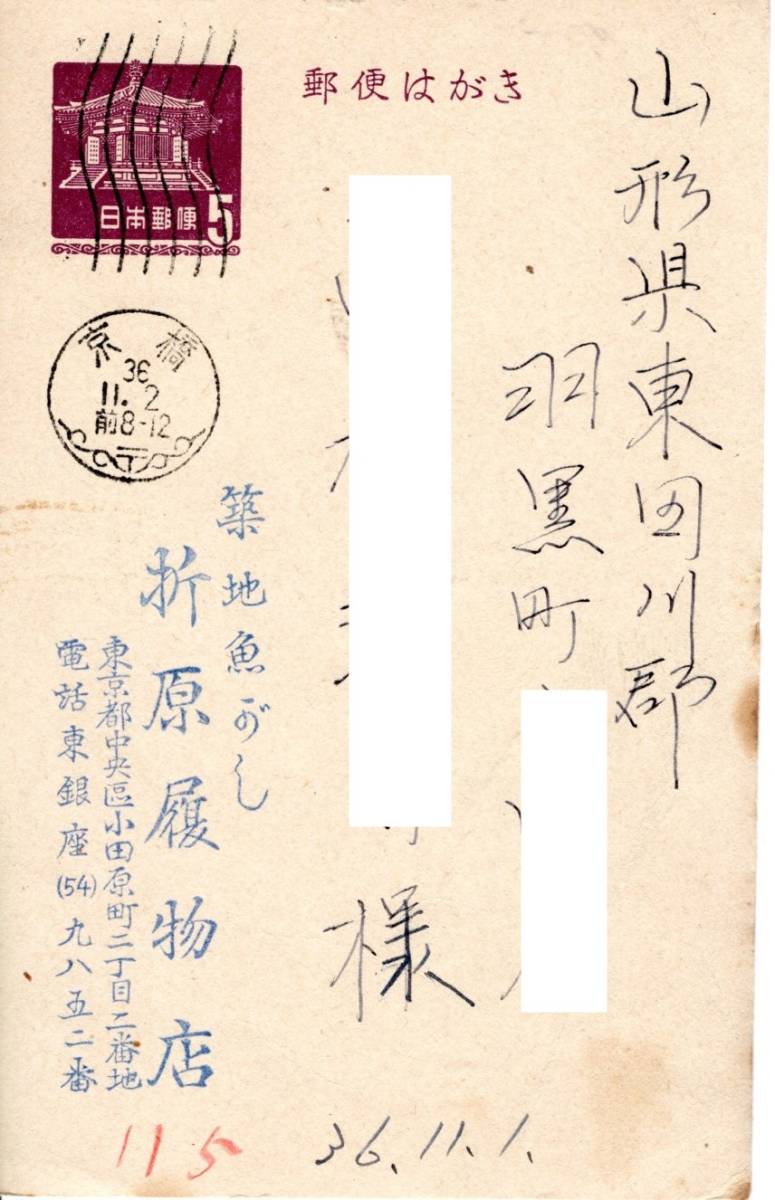 郵便はがき
日本郵便
5
京橋
36
11.2
前8-12
山形県東田川郡
羽黒町
様
築地魚がし
折原履物店
東京都中央區小田原町二丁目二番地
電話東銀座(54)九八五二番
36.11.1.
115